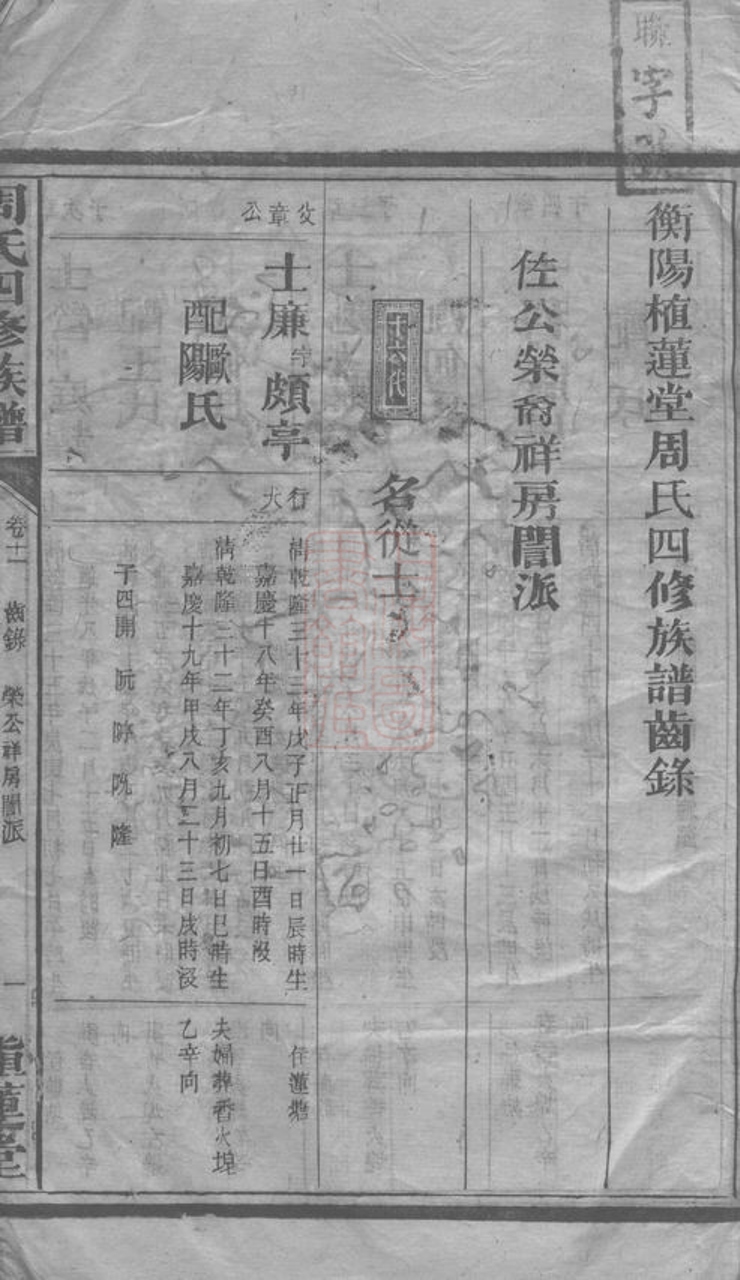 聯字號
衡陽植蓮堂周氏四修族譜齒錄
佐公榮裔祥房誾派
十六代
名從士
父章公
士廉字頗亭
配歐陽氏
行大
清乾隆三十三年戊子正月廿一日辰時生
嘉慶十八年癸酉八月十五日酉時歿
清乾隆三十二年丁亥九月初七日巳時生
嘉慶十九年甲戌八月二十三日戌時沒
子四開 阮 隆
住蓮塘
夫婦葬香火堄
乙辛向
周氏四修族譜
卷十一 齒錄 榮公祥房誾派 一
植蓮堂